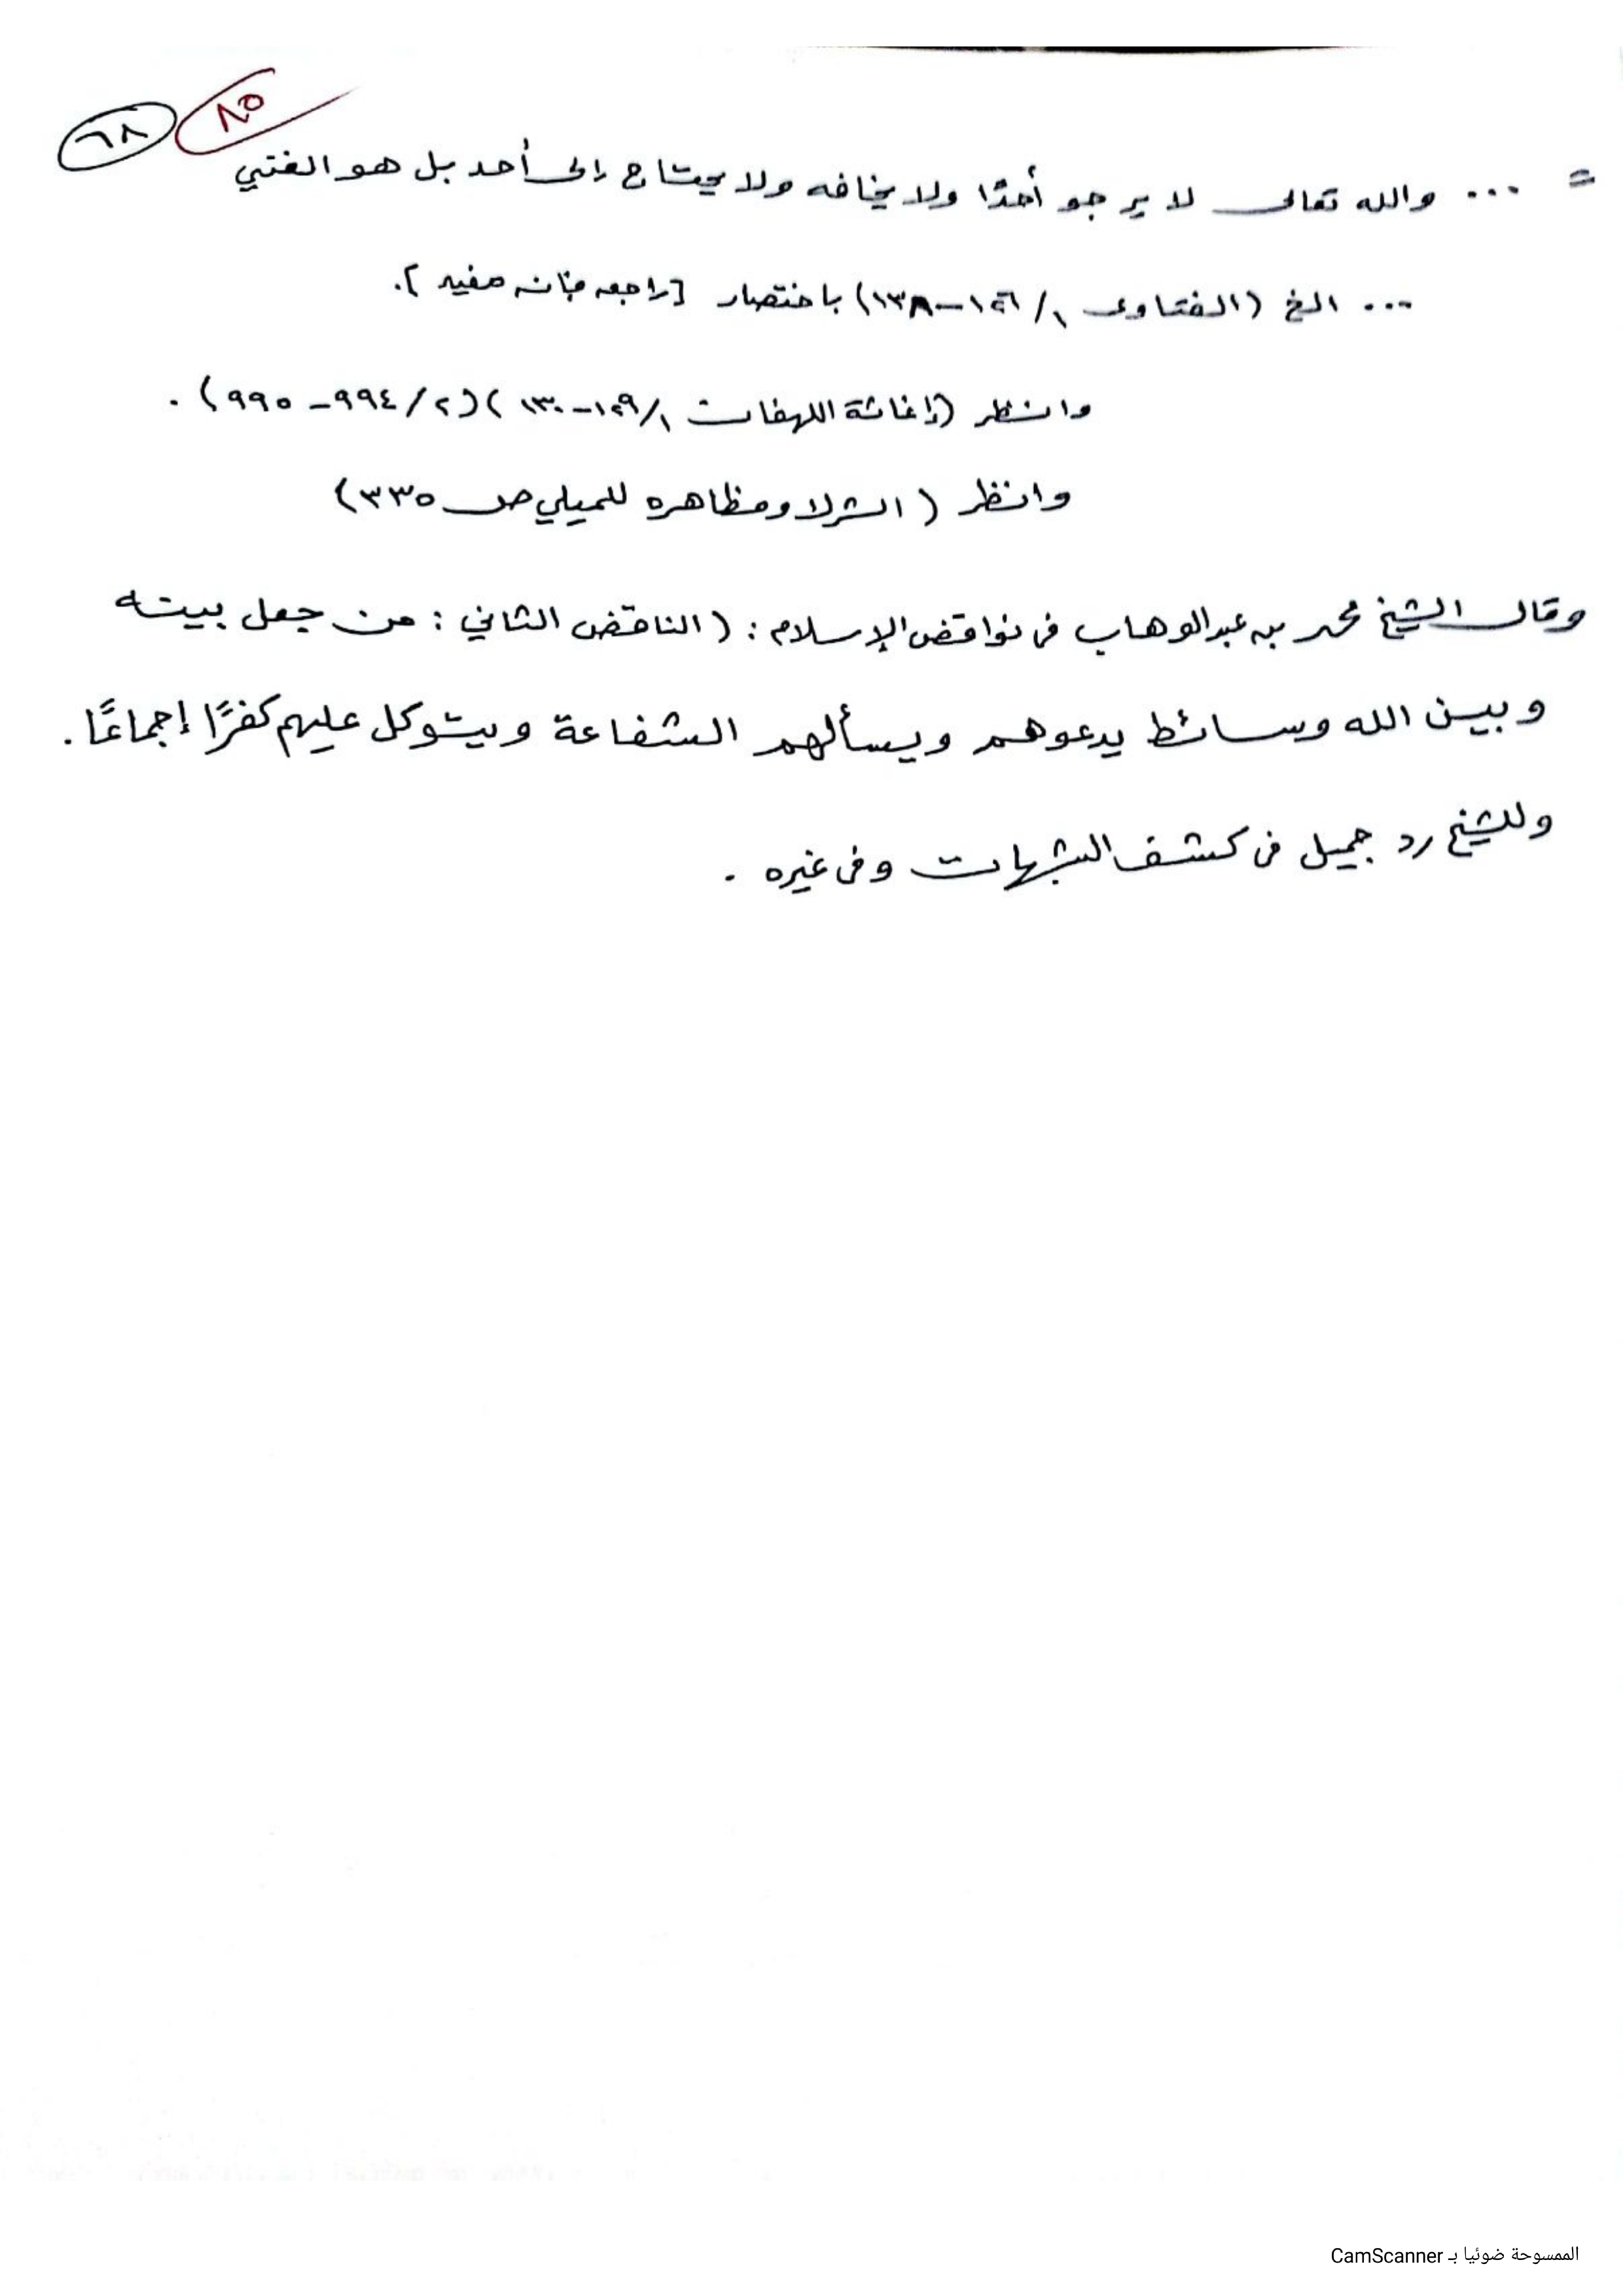 ٨٥
٦٨
= ... والله تعالى لا يرجو أحدًا ولا يخافه ولا يحتاج إلى أحد بل هو الغني
... الخ (الفتاوى ١/ ١٢٦-١٣٨) باختصار [راجعه فإنه مفيد].
وانظر (إغاثة اللهفان ١/ ١٢٩-١٣٠) (٢/ ٩٩٤-٩٩٥).
وانظر (الشرك ومظاهره للميلي ص ٣٣٥)
وقال الشيخ محمد بن عبدالوهاب في نواقض الإسلام: (الناقض الثاني: من جعل بينه
وبين الله وسائط يدعوهم ويسألهم الشفاعة ويتوكل عليهم كفرًا إجماعًا.
وللشيخ رد جميل في كشف الشبهات وفي غيره.
الممسوحة ضوئيا بـ CamScanner